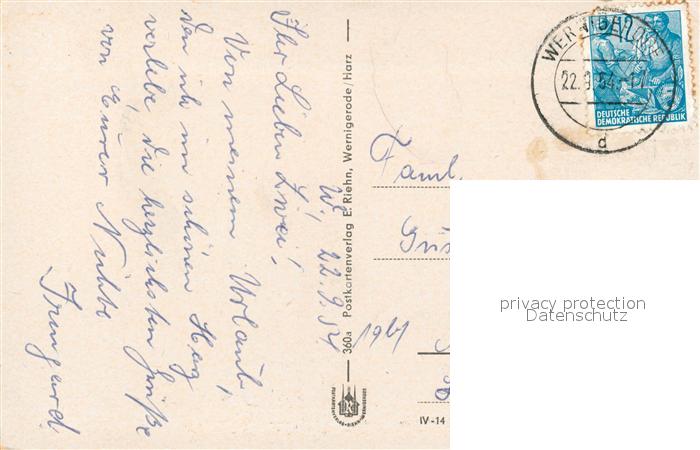 W., 22.9.54
Ihr Lieben Zwei!
Von meinem Urlaub,
den ich im schönen Harz
verlebe die herzlichsten Grüße
von Eurer Nichte
Irmgard.
360a Postkartenverlag E. Riehn, Wernigerode/Harz
POSTKARTENVERLAG·RIEHN·WERNIGERODE
WERNIGERODE
22.9.54
d
DEUTSCHE
DEMOKRATISCHE REPUBLIK
Faml.
Güs
1961
IV-14
privacy protection
Datenschutz